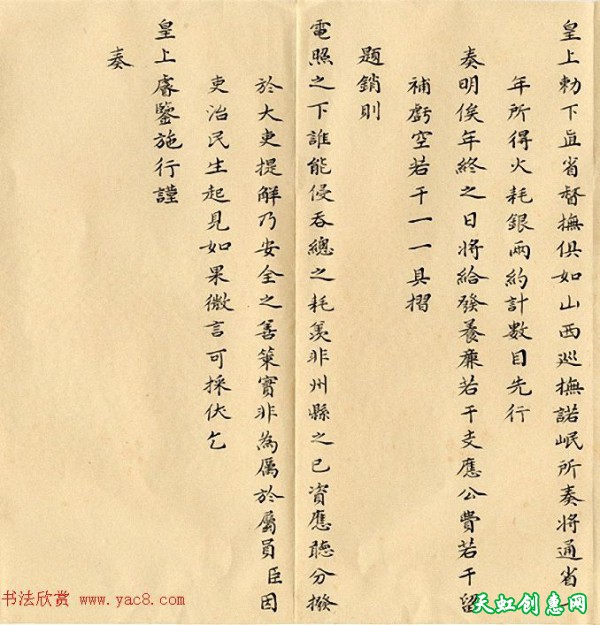 皇上勅下直省督撫俱如山西巡撫諾岷所奏將通省一
年所得火耗銀兩約計數目先行
奏明俟年終之日將給發養廉若干支應公費若干留
補虧空若干一一具摺
題銷則
電照之下誰能侵吞總之耗羨非州縣之已資應聴分撥
於大吏提解乃安全之善策實非為厲於屬員臣因
吏治民生起見如果微言可採伏乞
皇上睿鑒施行謹
奏
书法欣赏 www.yac8.com
天虹创意网